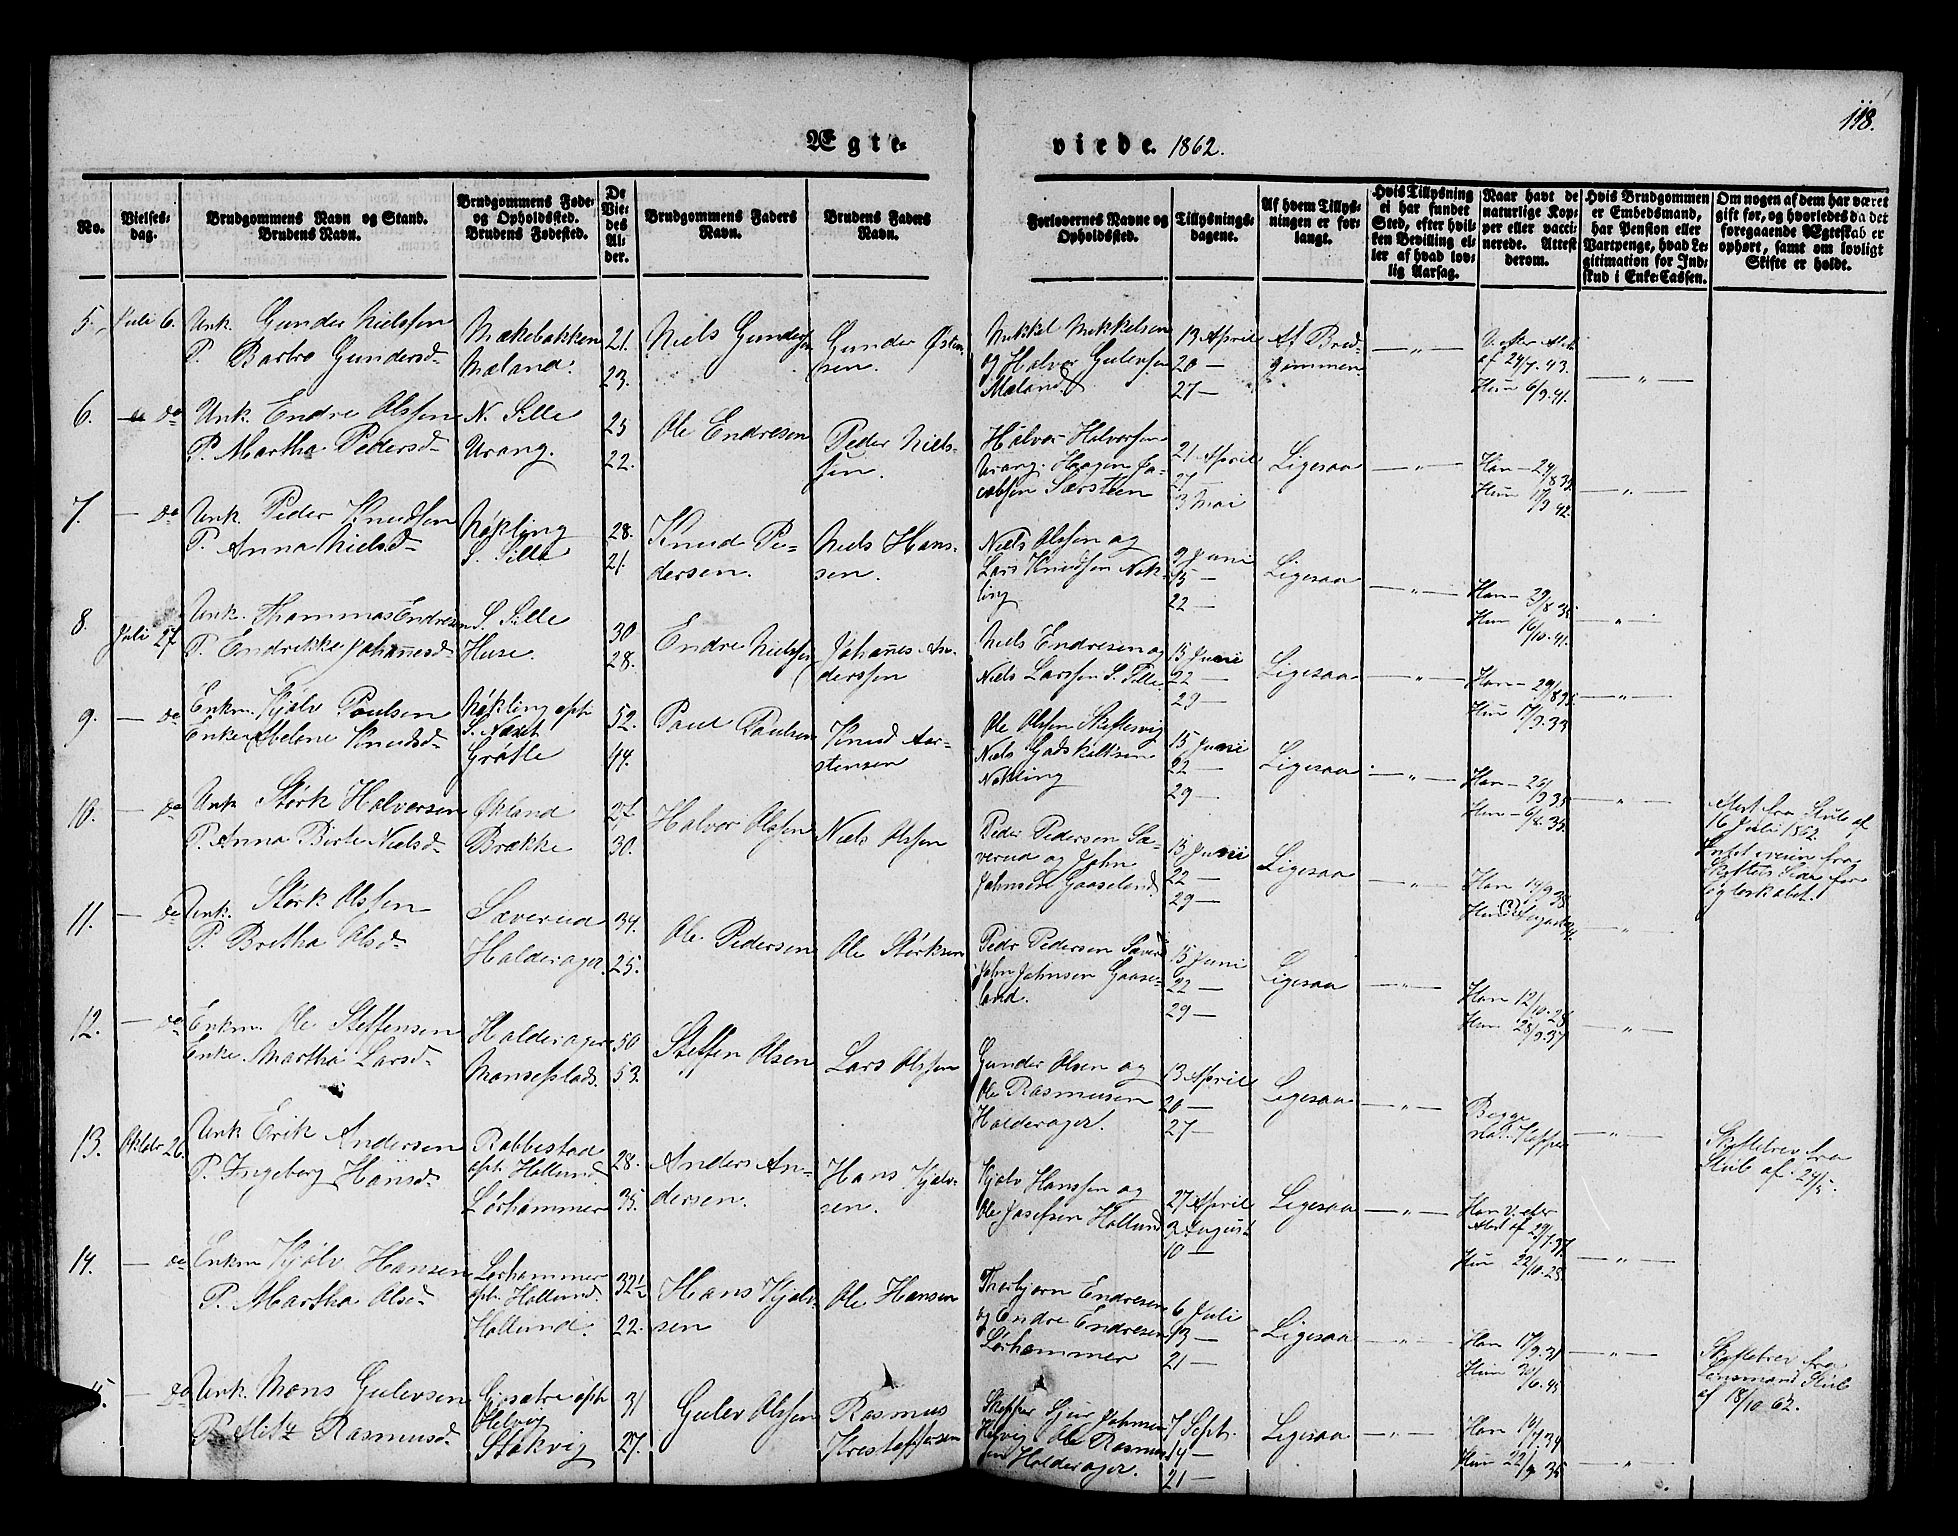 118.
Ægte-
vierde. 1862.
No.
Vielses-
dag.
Brudgommens Navn og Stand.
Brudens Navn.
Brudgommens Føde-
og Opholdssted.
Brudens Fødested.
De
Vie-
des
Al-
der.
Brudgommens Faders
Navn.
Brudens Faders
Navn.
Forlovernes Navne og
Opholdssted.
Tillysnings-
dagene.
Af hvem Tillys-
ningen er for-
langt.
Hvis Tillysning
ei har fundet
Sted, efter hvil-
ken Bevilling el-
ler af hvad lov-
lig Aarsag.
Naar havt de
naturlige Kop-
per eller vacci-
nerede. Attest
derom.
Hvis Brudgommen
er Embedsmand,
har Pension eller
Vartpenge, hvad Le-
gitimation for Ind-
skud i Enke-Cassen.
Om nogen af dem har været
gift før, og hvorledes da det
foregaaende Ægteskab er
ophørt, samt om lovligt
Skifte er holdt.
5. Juli 6. Unk. Gunder Nielssen
P. Barbro Gundersd.
Mækebakken
Mæland.
21.
23.
Niels Gunderssen
Gunder Østen-
sen.
Mikkel Mikkelsen
og Halvor Gulevsen
Mæland.
13 April
20 —
27 —
Af Brud-
gommen
— " —
V. efter Attest
af 24/7. 43.
Hun 6/9. 41.
— " —
6. — do Unk. Endre Olssen
P. Martha Pedersd.
N. Sille
Urang.
25
22.
Ole Endresen
Peder Niels-
sen.
Halvor Halvorsen
Urang. Haagen Ja-
cobsen Særsteen
21 April
27
3 Mai
Ligesaa
— " —
Han — 24/8 39.
Hun 17/9 42.
— " —
7. — do Unk. Peder Knudsen
P. Anna Nielsd.
Nøkling
S. Sille
28.
21.
Knud Pe-
dersen.
Niels Hans-
sen.
Niels Olssen og
Lars Knudsen Nøk-
ling
9 Juni
15 —
22 —
Ligesaa
— " —
Han — 29/8 35
Hun 16/10. 41.
— " —
8. Juli 27. Unk. Thommas Endresen
P. Endrikke Johannesd.
S. Sille
Huse.
30
28.
Endre Nielssen
Johannes An-
derssen
Niels Endresen og
Niels Larssen S. Sille
15 Juni
22 —
29 —
Ligesaa
— " —
Han — 29/8 35
Hun 17/9. 34
— " —
9. — do Enkm. Kjølv Poulsen
Enke Abelone Knudsd.
Nøkling oph.
S. Næset
Grøtle
52.
44.
Poul Poulsen
Knud Aar-
stensen
Ole Olssen Skeftesvig
Niels Gadskalksen
Nøkling
15 Juni
22 —
29 —
Ligesaa
— " —
— " —
10. — do Unk Størk Halvorsen
P. Anna Birte Nielsd.
Økland
Brække
27.
30.
Halvor Olssen
Niels Olssen
Peder Pedersen Sæ-
verud og John
Johnsen Gaaseland
15 Juni
22 —
29 —
Ligesaa
— " —
— " —
11. — do Unk. Størk Olssen
P. Bretha Olsd.
Sæverud
Halderager.
34.
25.
Ole Pedersen
Ole Størksen
Pedr Pedersen Sæver
John Johnsen Gaase-
land.
15 Juni
22 —
29 —
Ligesaa
— " —
Han 12/10. 28
Hun 28/9. 37
— " —
12. — do Enkm. Ole Steffensen
Enke Martha Larsd.
Halderager
Monseplads.
50
53.
Steffen Olsen
Lars Olssen
Gunder Olsen og
Ole Rasmusen
Halderager.
13 April
20 —
27 —
Ligesaa
— " —
Begge
nat. Kopper
— " —
Skiftebrev fra
Skub af 24/5.
13. Oktobr 26. Unk Erik Andersen
P. Ingeborg Hansd.
Rabbestad
oph. Hollund
Lørhammer
28.
35.
Anders An-
dersen.
Hans Kjølv-
sen.
Kjølv Hanssen og
Ole Josefsen Hollund
27 April
3 August
10 —
Ligesaa
— " —
Han v. efter
Attest af 29/7. 37.
Hun 22/10. 28
— " —
14. — do Enkm Kjølv Hansen
P. Martha Olsd.
Lørhammer
oph. Hollund.
Hollund.
32½
22.
Hans Kjølv-
sen
Ole Hansen
Thorbjørn Endresen
og Endre Endresen
Lørhammer
6 Juli
13 —
21 —
Ligesaa
— " —
Han 17/9. 31
— " —
Skiftebrev fra
Lensmand Skub
af 18/10 62.
15. — do Unk. Mons Gulevsen
P. Alitz Rasmusd.
Gjesætre oph.
Helvig
Stokvig
31
27.
Gulev Olssen
Rasmus
Kristoffersen
Skipper Sjur Johnsen
Helvig. Ole Rasmus-
sen Halderager.
7 Sept.
14 —
21 —
Ligesaa
— " —
Hun 22/9. 35
— " —